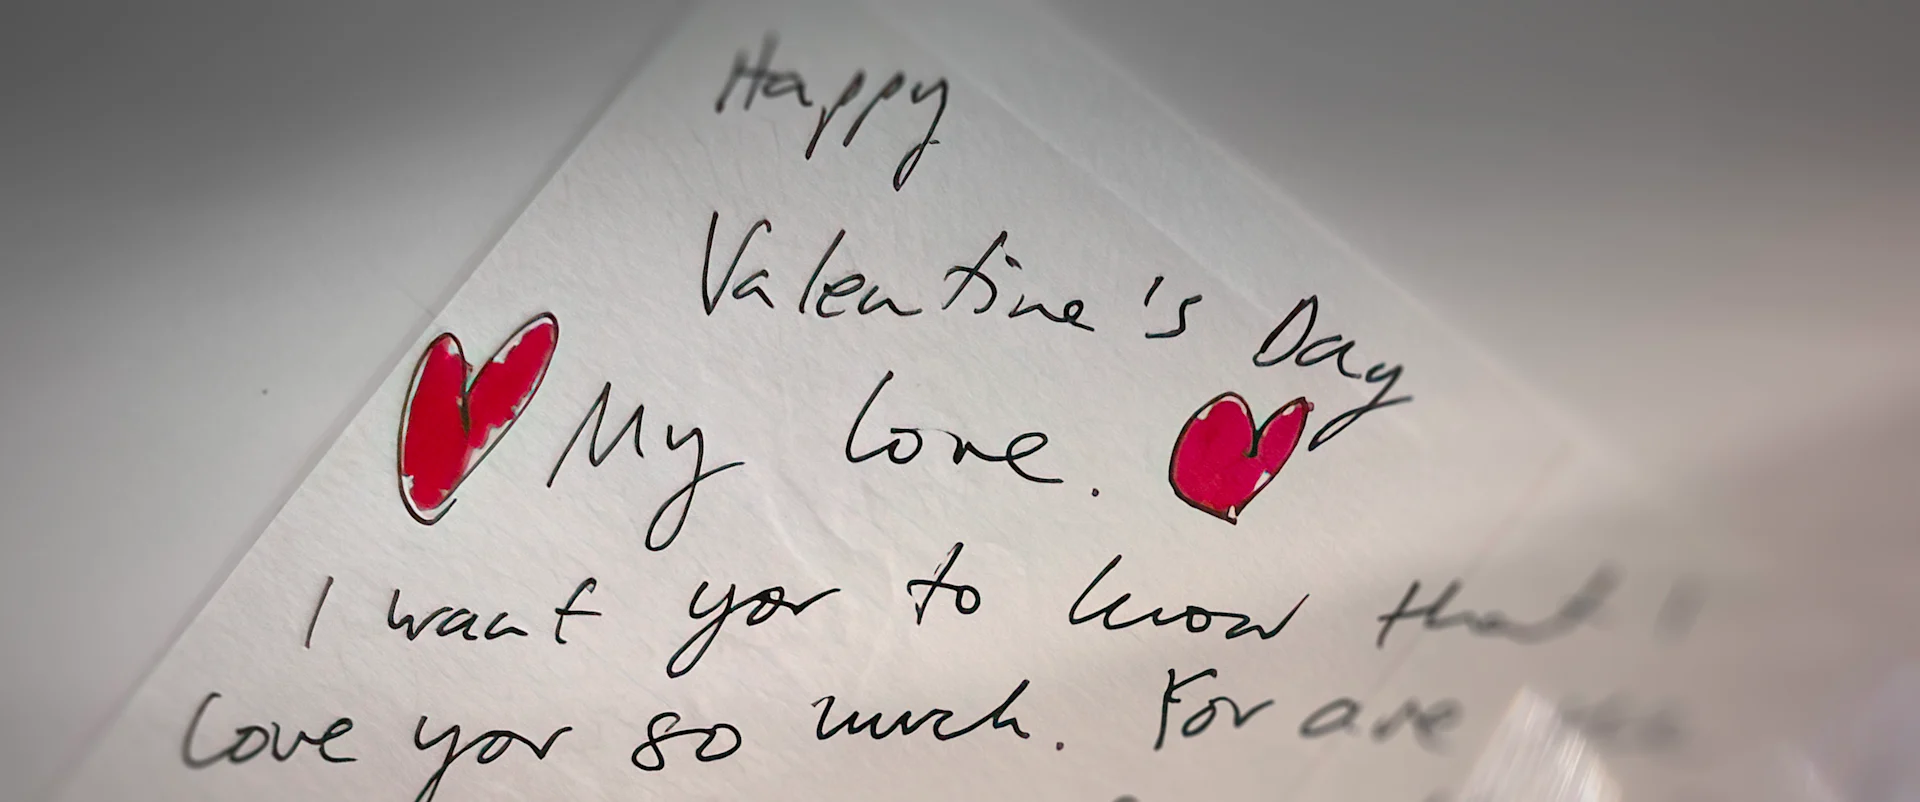 Happy
Valentine's Day
My love.
I want you to know that I
love you so much. For are